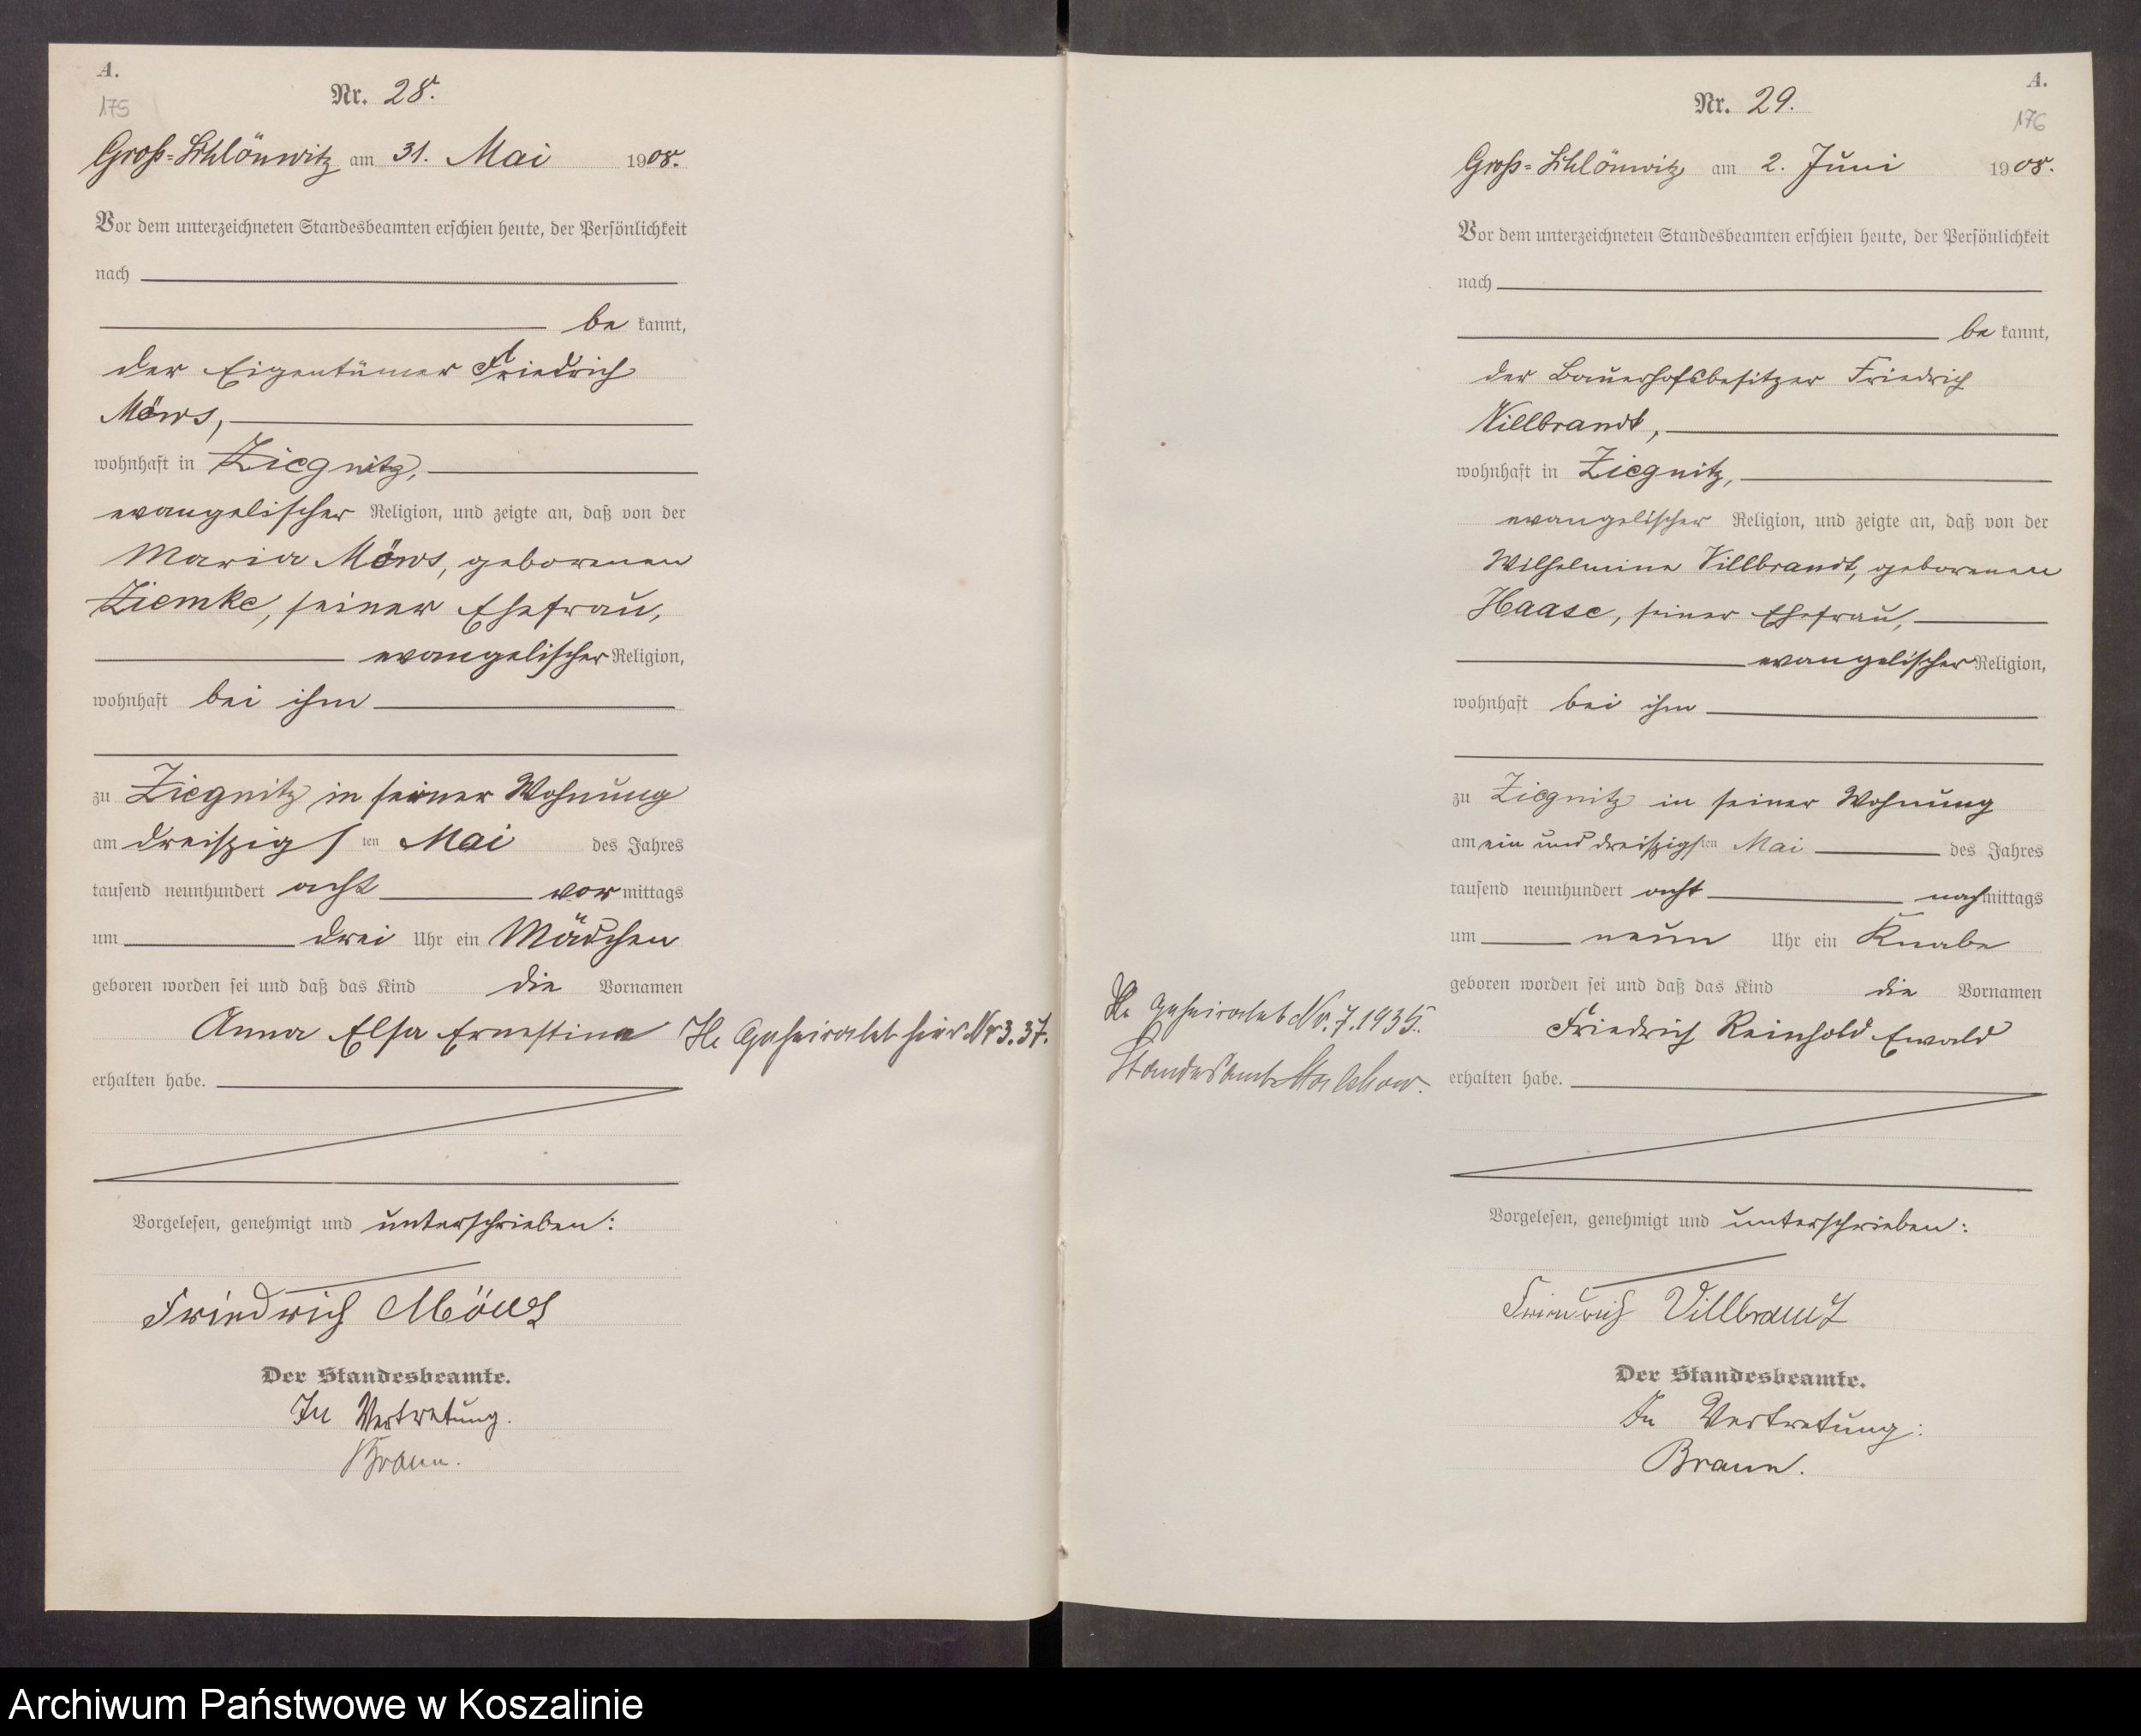 A.
175
Nr. 28.
Groß-Schlönwitz am 31. Mai 1908.
Vor dem unterzeichneten Standesbeamten erschien heute, der Persönlichkeit
nach
be kannt,
der Eigentümer Friedrich
Möws,
wohnhaft in Ziegnitz,
evangelischer Religion, und zeigte an, daß von der
Maria Möws, geborenen
Ziemke, seiner Ehefrau,
evangelischer Religion,
wohnhaft bei ihm
zu Ziegnitz in seiner Wohnung
am dreiszigs ten Mai des Jahres
tausend neunhundert acht vor mittags
um drei Uhr ein Mädchen
geboren worden sei und daß das Kind die Vornamen
Anna Elsa Ernestine
erhalten habe.
H. Geheiratet hier Nr 3.37.
Vorgelesen, genehmigt und unterschrieben:
Friedrich Möws
Der Standesbeamte.
In Vertretung.
Braun.
A.
176
Nr. 29.
Groß-Schlönwitz am 2. Juni 1908.
Vor dem unterzeichneten Standesbeamten erschien heute, der Persönlichkeit
nach
be kannt,
der Bauerhofsbesitzer Friedrich
Villbrandt,
wohnhaft in Ziegnitz,
evangelischer Religion, und zeigte an, daß von der
Wilhelmine Villbrandt, geborenen
Haase, seiner Ehefrau,
evangelischer Religion,
wohnhaft bei ihm
zu Ziegnitz in seiner Wohnung
am ein und dreiszigs ten Mai des Jahres
tausend neunhundert acht nach mittags
um neun Uhr ein Knabe
geboren worden sei und daß das Kind die Vornamen
Friedrich Reinhold Ewald
erhalten habe.
H. Geheiratet Nr. 7.1935.
Standesamt
Vorgelesen, genehmigt und unterschrieben:
Friedrich Villbrandt
Der Standesbeamte.
In Vertretung:
Braun.
Archiwum Państwowe w Koszalinie